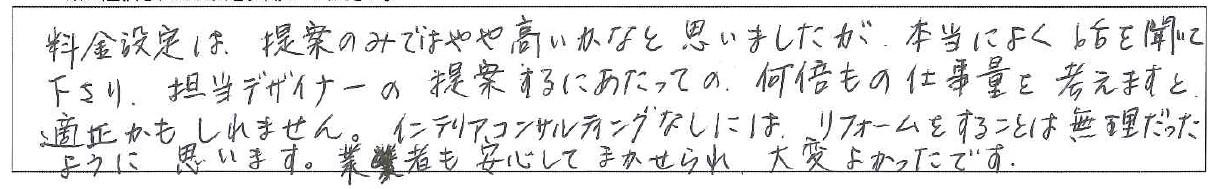 料金設定は、提案のみではやや高いかなと思いましたが、本当によく話を聞いて
下さり、担当デザイナーの提案するにあたっての、何倍もの仕事量を考えますと、
適正かもしれません。インテリアコンサルティングなしには、リフォームをすることは無理だった
ように思います。業者も安心してまかせられ、大変よかったです。